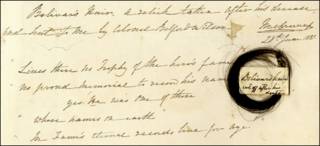 Bolivar's Hair, a relick taken after his decease
and sent to me by Colonel Belford Wilson
Lives there no Trophy of the hero's fame
no proud memorial to record his name
yes he was one of those
whose names on earth
In Fame's eternal records live for aye
Bolivar's hair
cut off after his